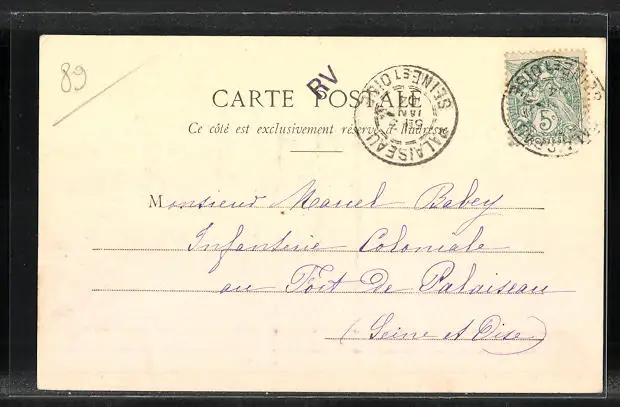 89
RV
CARTE POSTALE
Ce côté est exclusivement réservé à l'adresse
PALAISEAU
SEINE ET OISE
5c
Monsieur Marcel Babey
Infanterie Coloniale
au Fort de Palaiseau
(Seine et Oise)